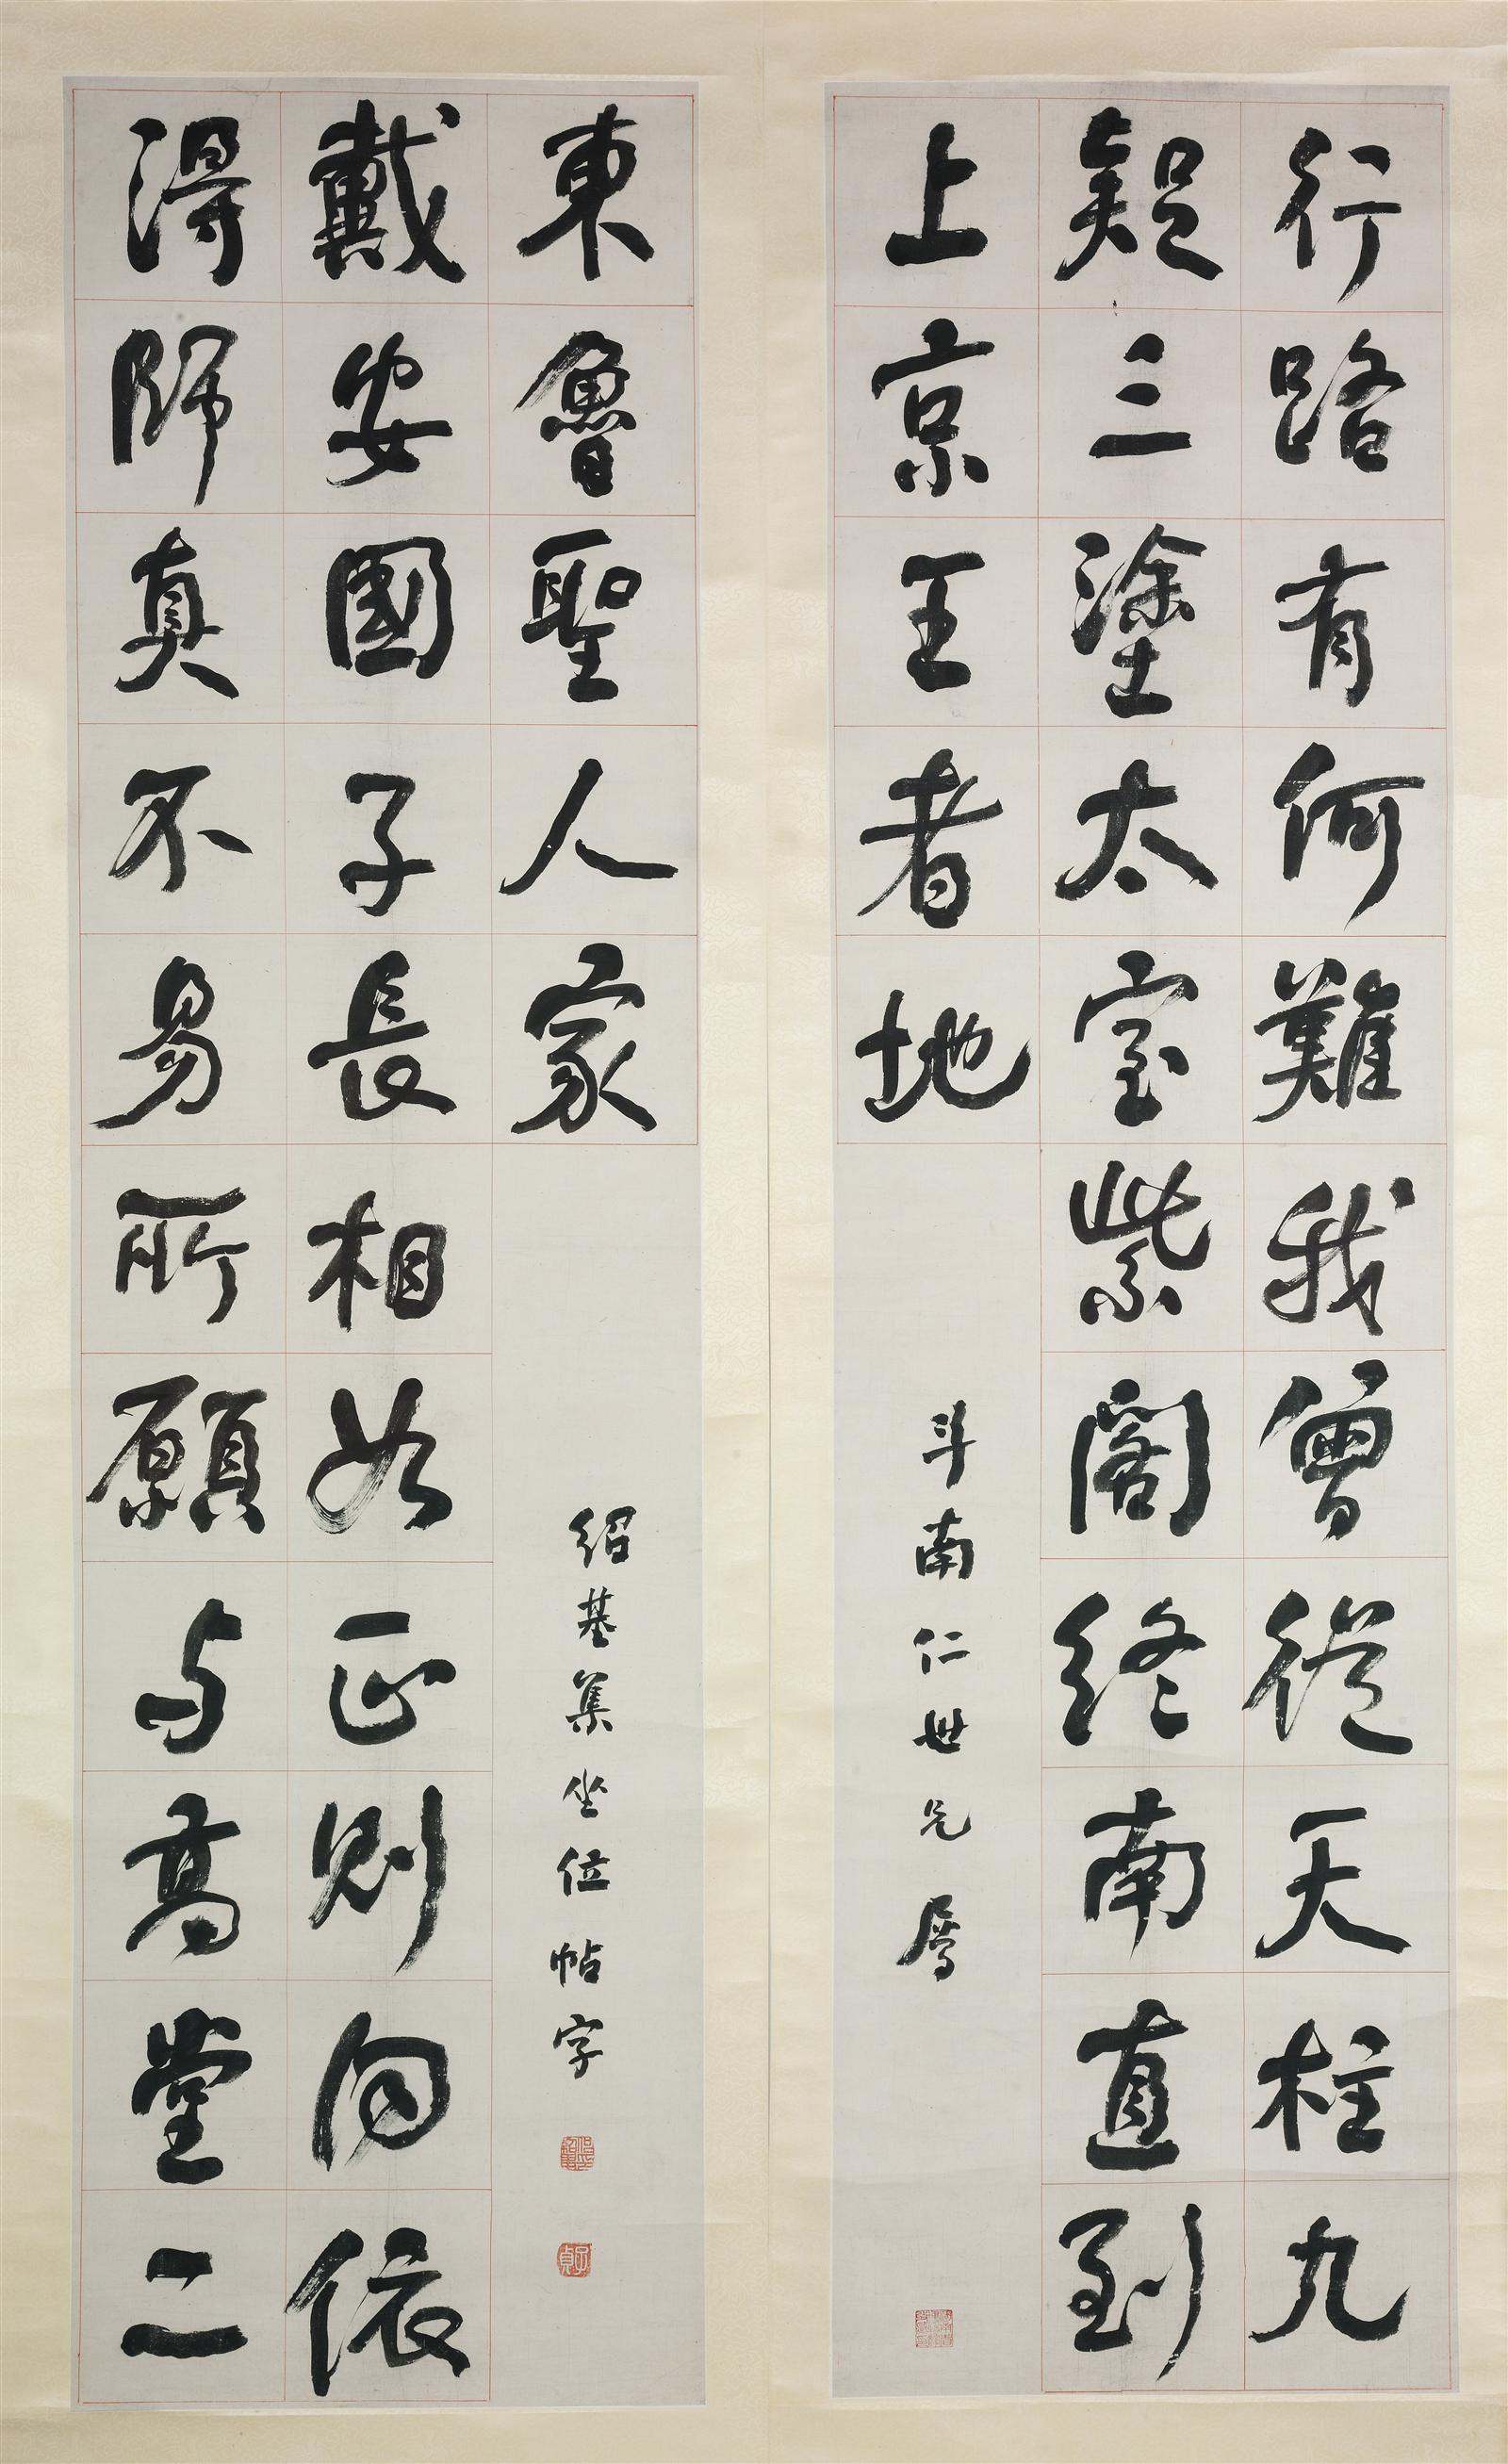 行路有何難我曾從天柱九
疑三塗太室紫閣終南直到
上京王者地
斗南仁世兄屬
得師真不易所願与高堂二
戴安國子長相如正則向依
東魯聖人家
紹基集坐位帖字
子貞